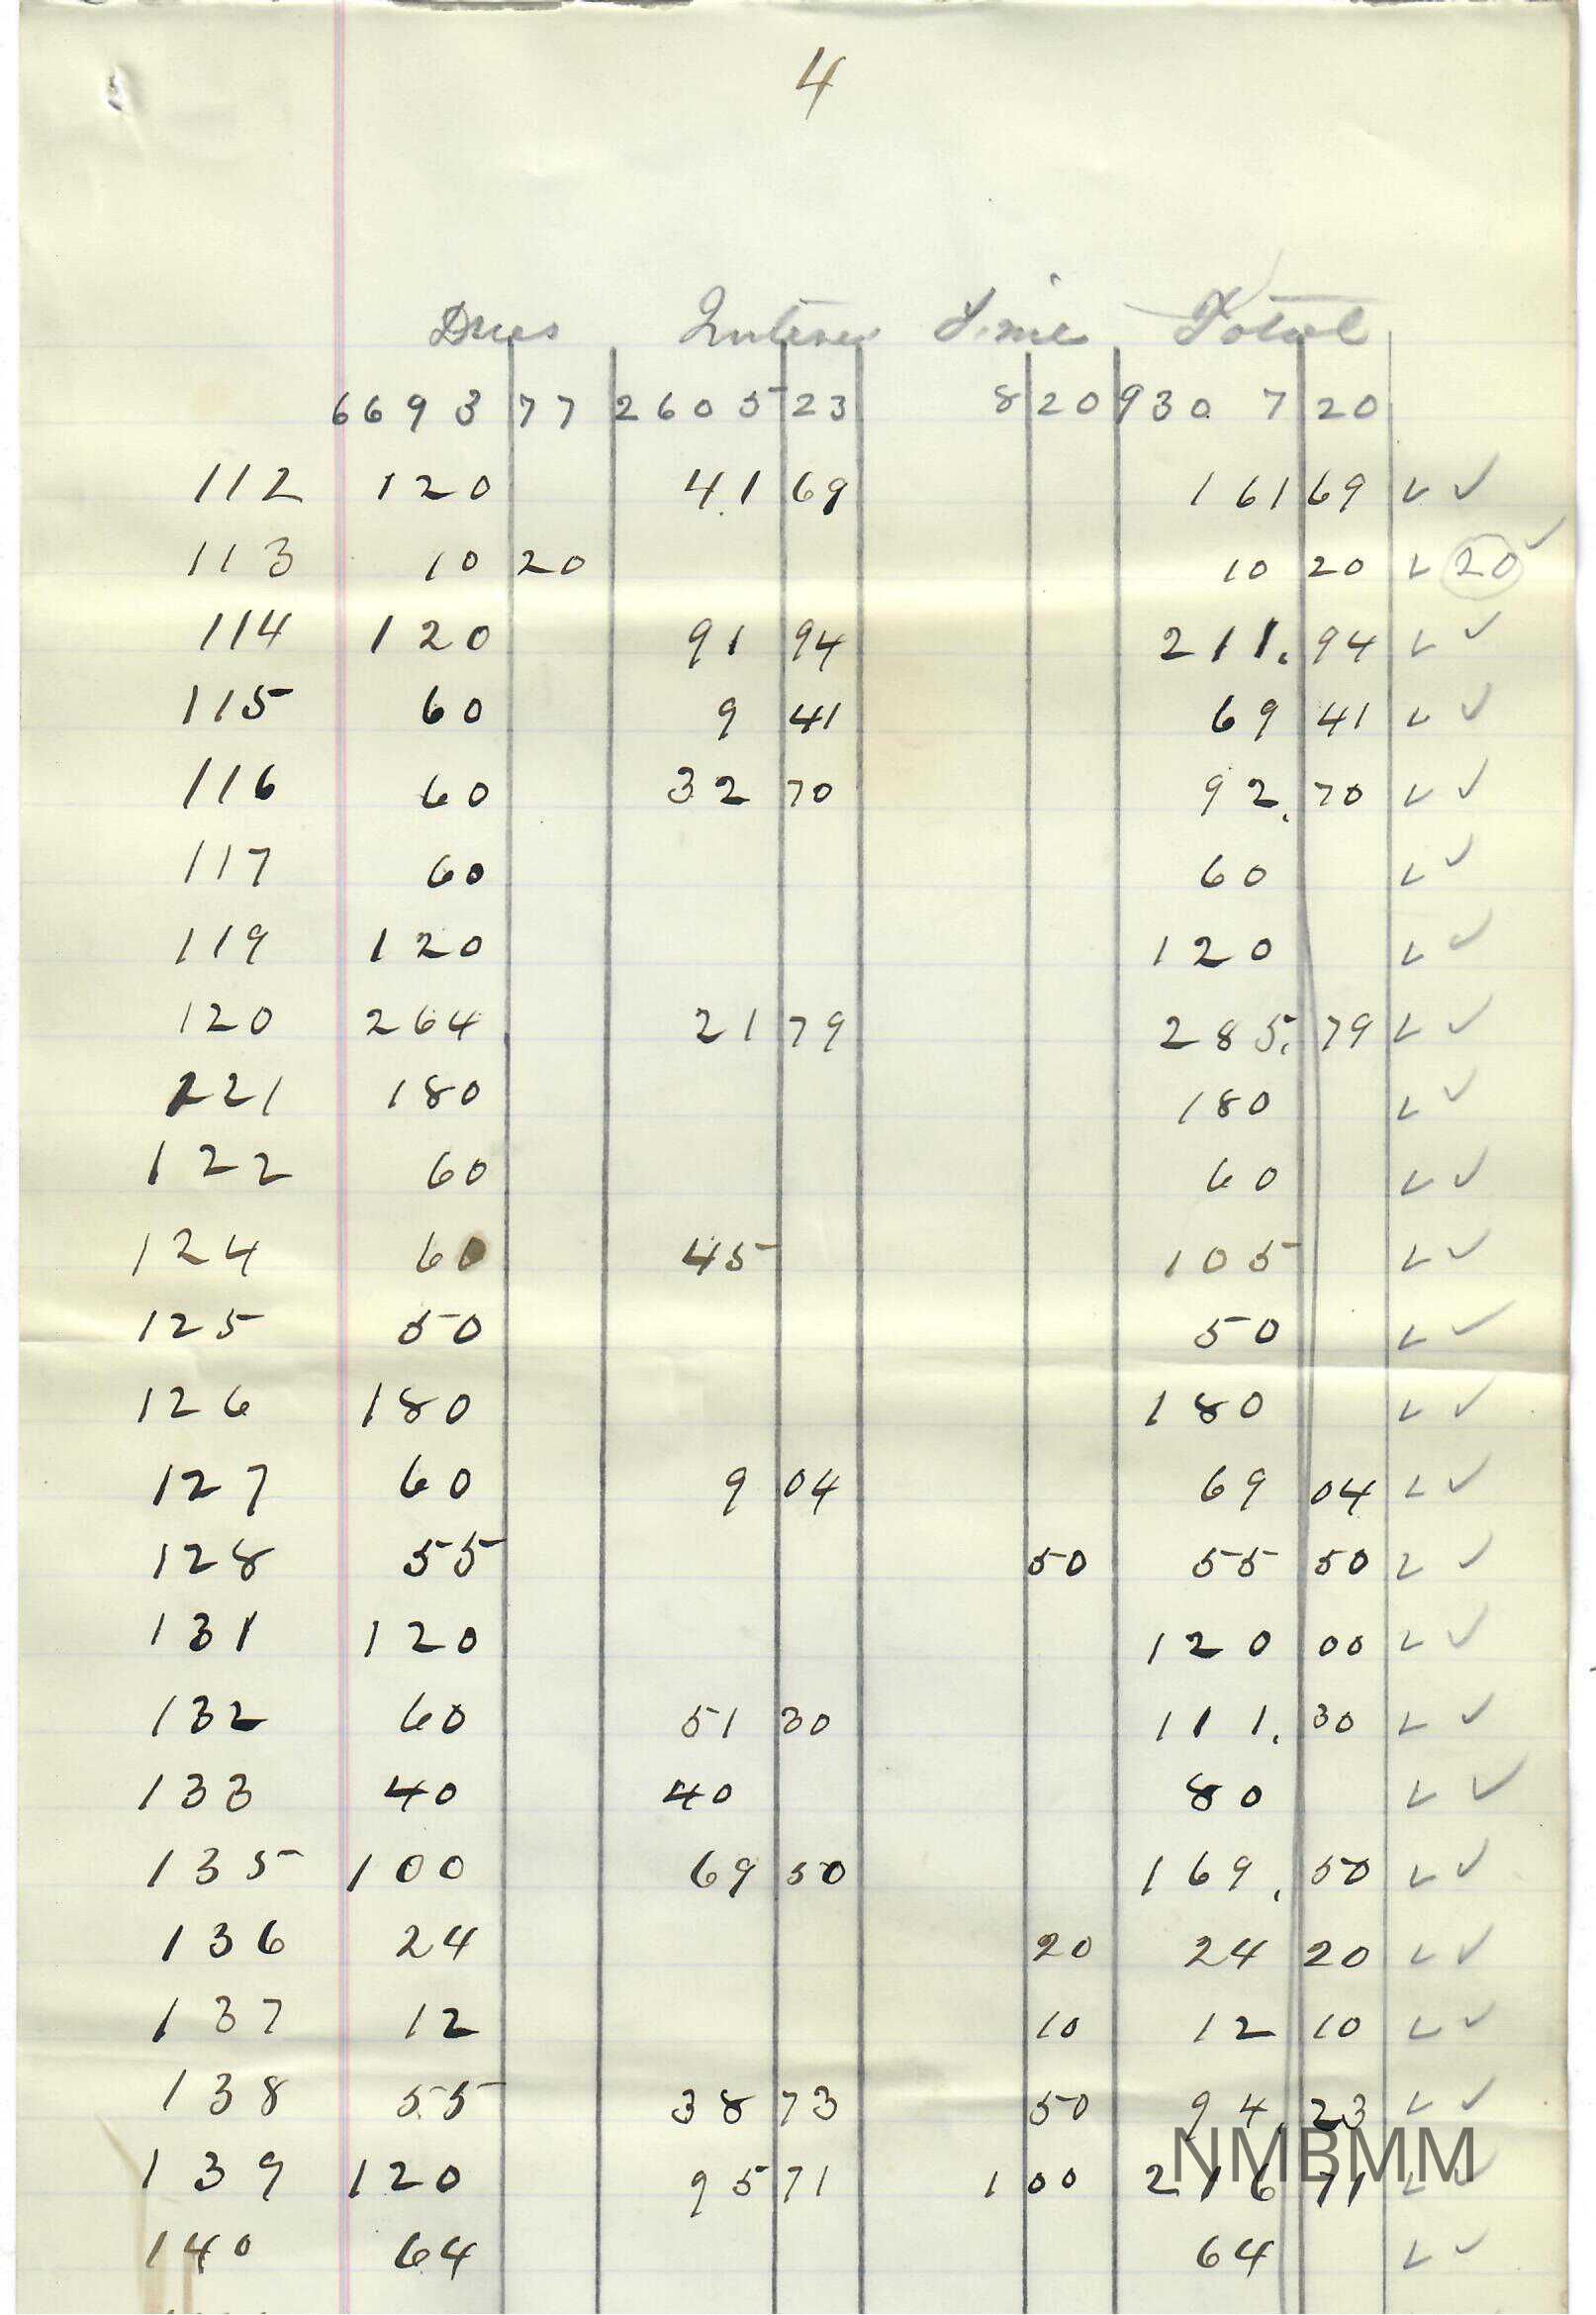 4
Dues Interest Fine Total
6693 77 2605 23 8 20 930 7 20
112 120 41 69 161 69 ✓ ✓
113 10 20 10 20 ✓ 20 ✓
114 120 91 94 211. 94 ✓ ✓
115 60 9 41 69 41 ✓ ✓
116 60 32 70 92. 70 ✓ ✓
117 60 60 ✓ ✓
119 120 120 ✓ ✓
120 264 21 79 285. 79 ✓ ✓
121 180 180 ✓ ✓
122 60 60 ✓ ✓
124 60 45 105 ✓ ✓
125 50 50 ✓ ✓
126 180 180 ✓ ✓
127 60 9 04 69 04 ✓ ✓
128 55 50 55 50 ✓ ✓
131 120 120 00 ✓ ✓
132 60 51 30 111. 30 ✓ ✓
133 40 40 80 ✓ ✓
135 100 69 50 169. 50 ✓ ✓
136 24 20 24 20 ✓ ✓
137 12 10 12 10 ✓ ✓
138 55 38 73 50 94. 23 ✓ ✓
NMBMM
139 120 95 71 1 00 216 71 ✓ ✓
140 64 64 ✓ ✓